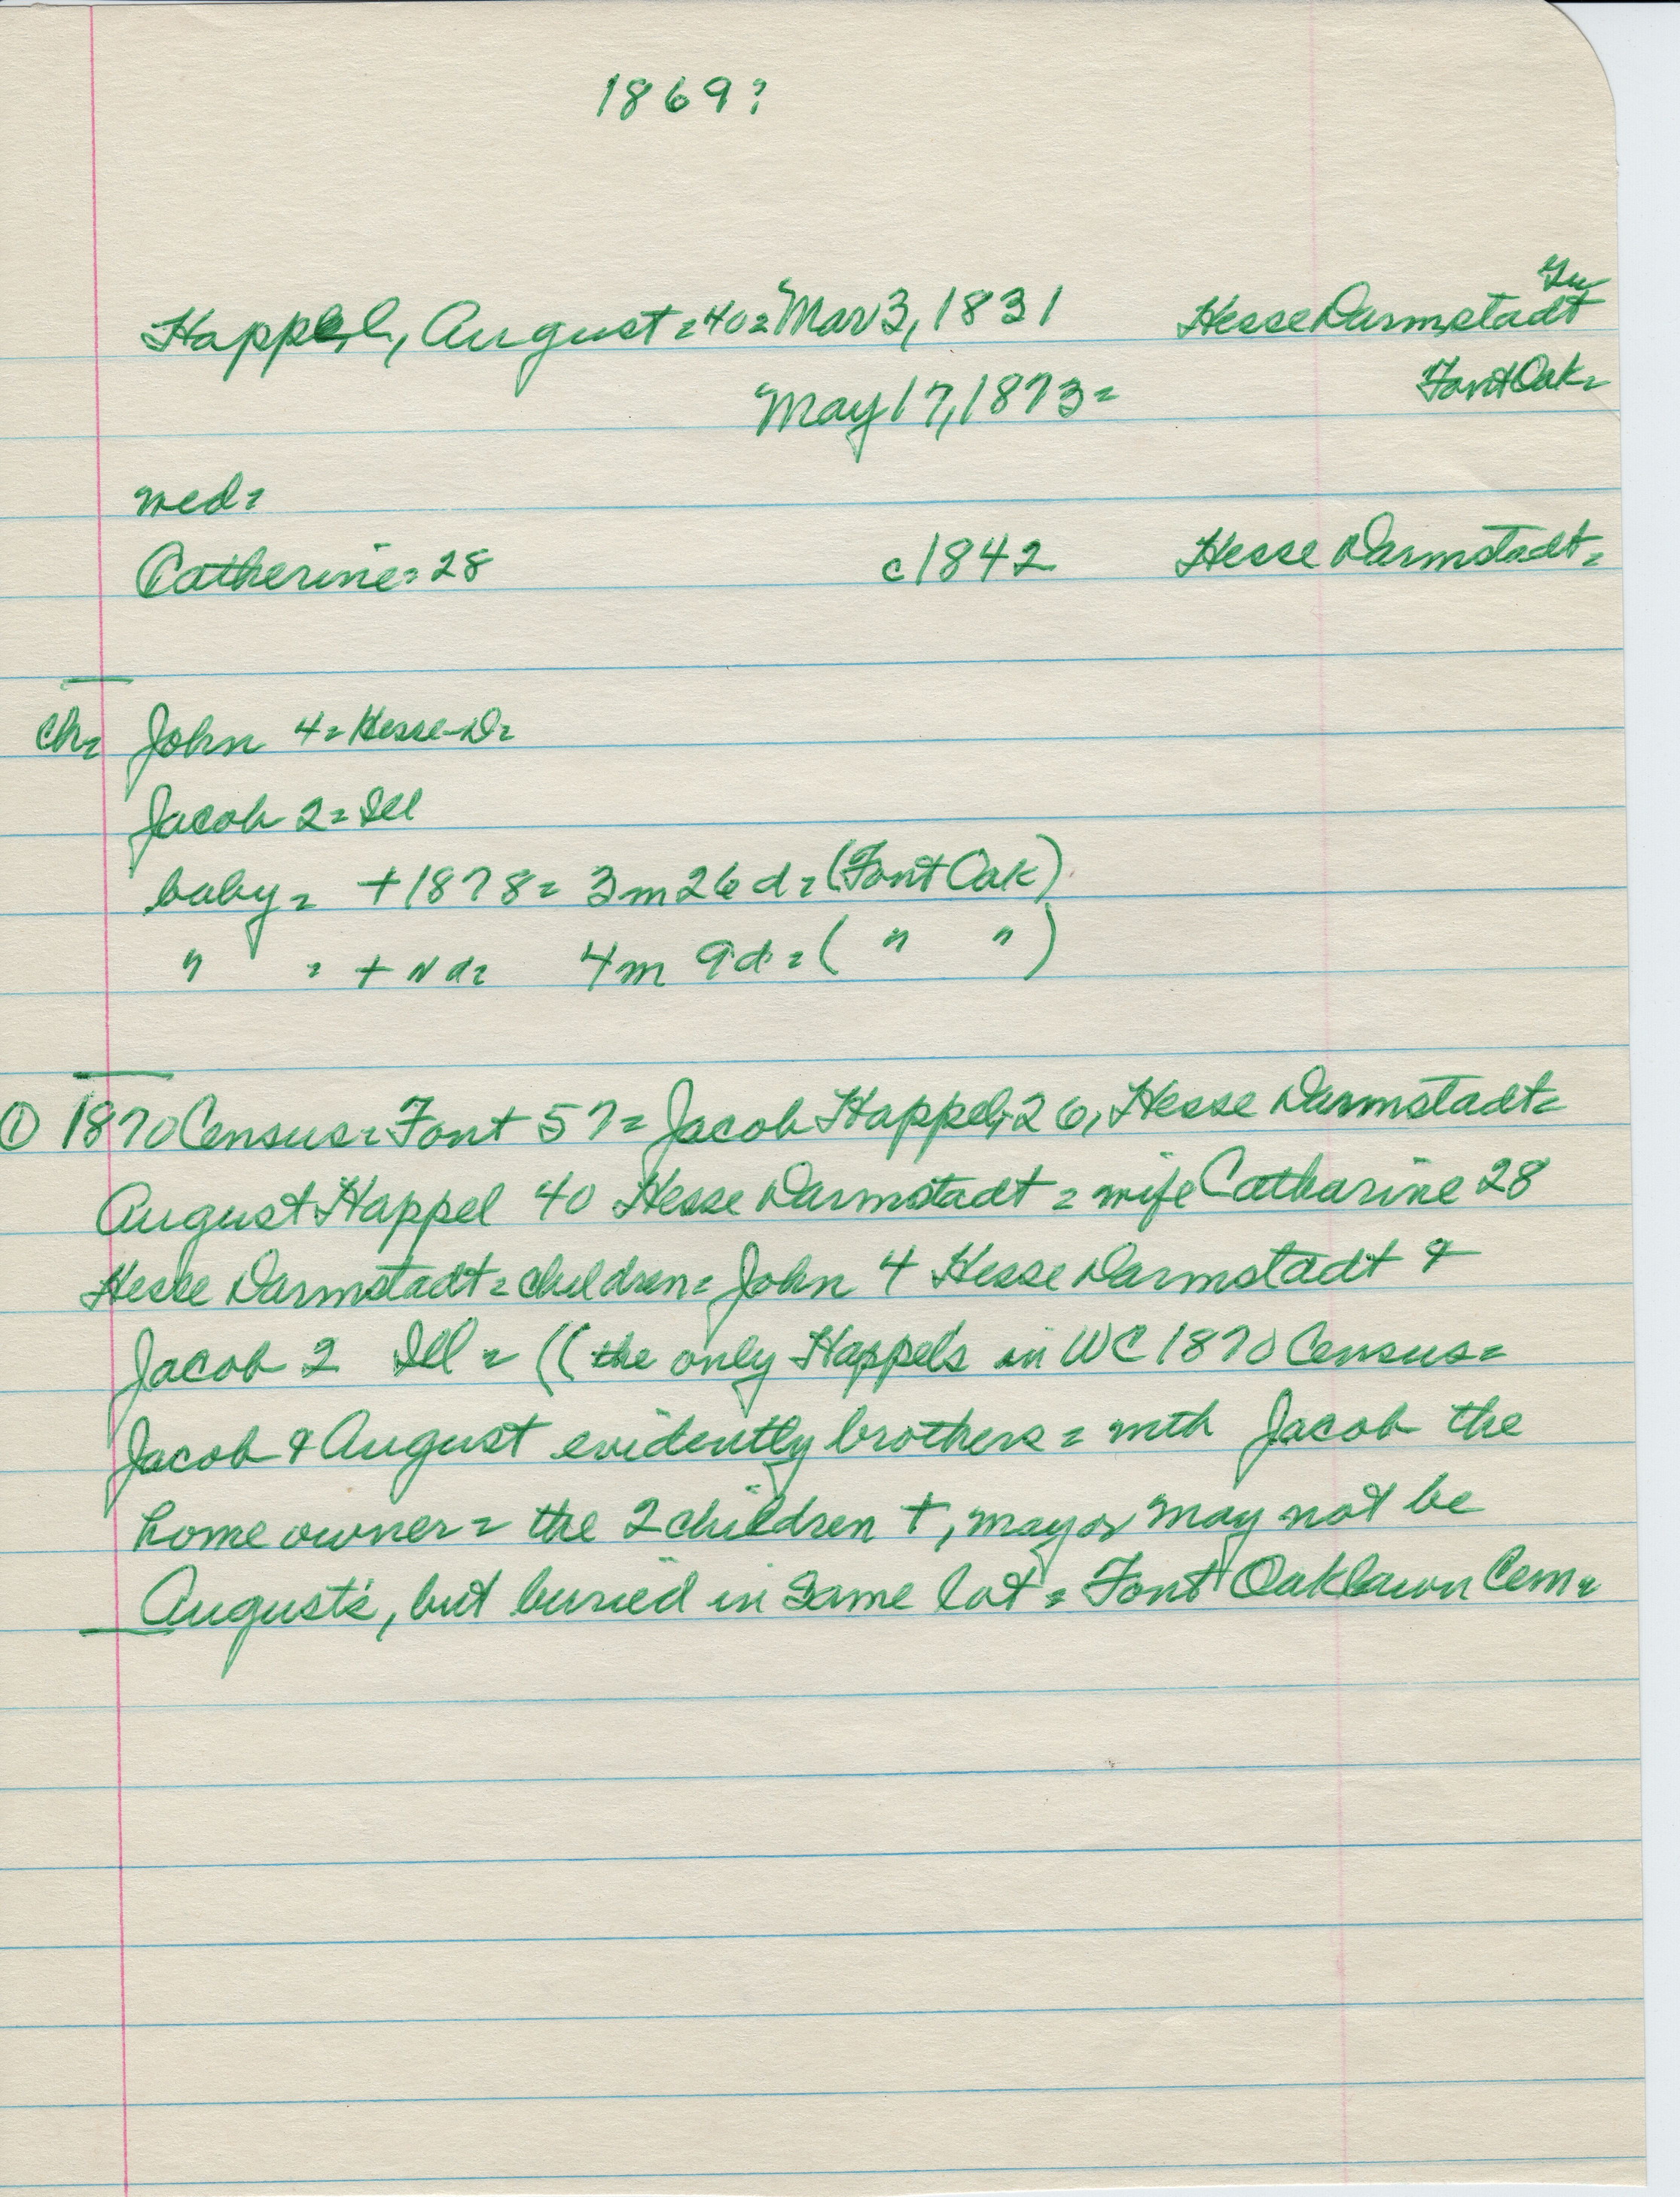 1869?
Happel, August = 40 = Mar 3, 1831 Hesse Darmstadt
May 17, 1873 = Font Oak =
wed =
Catherine = 28 c 1842 Hesse Darmstadt =
ch = John 4 = Hesse-D =
Jacob 2 = Ill
baby = + 1878 = 3m 26 d = (Font Oak)
" = + nd = 4m 9d = ( " " )
① 1870 Census = Font 57 = Jacob Happel, 26, Hesse Darmstadt =
August Happel 40 Hesse Darmstadt = wife Catharine 28
Hesse Darmstadt = children = John 4 Hesse Darmstadt &
Jacob 2 Ill = ((the only Happels in WC 1870 Census =
Jacob & August evidently brothers = with Jacob the
home owner = the 2 children +, may or may not be
August's, but buried in same lot = Font Oaklawn Cem =